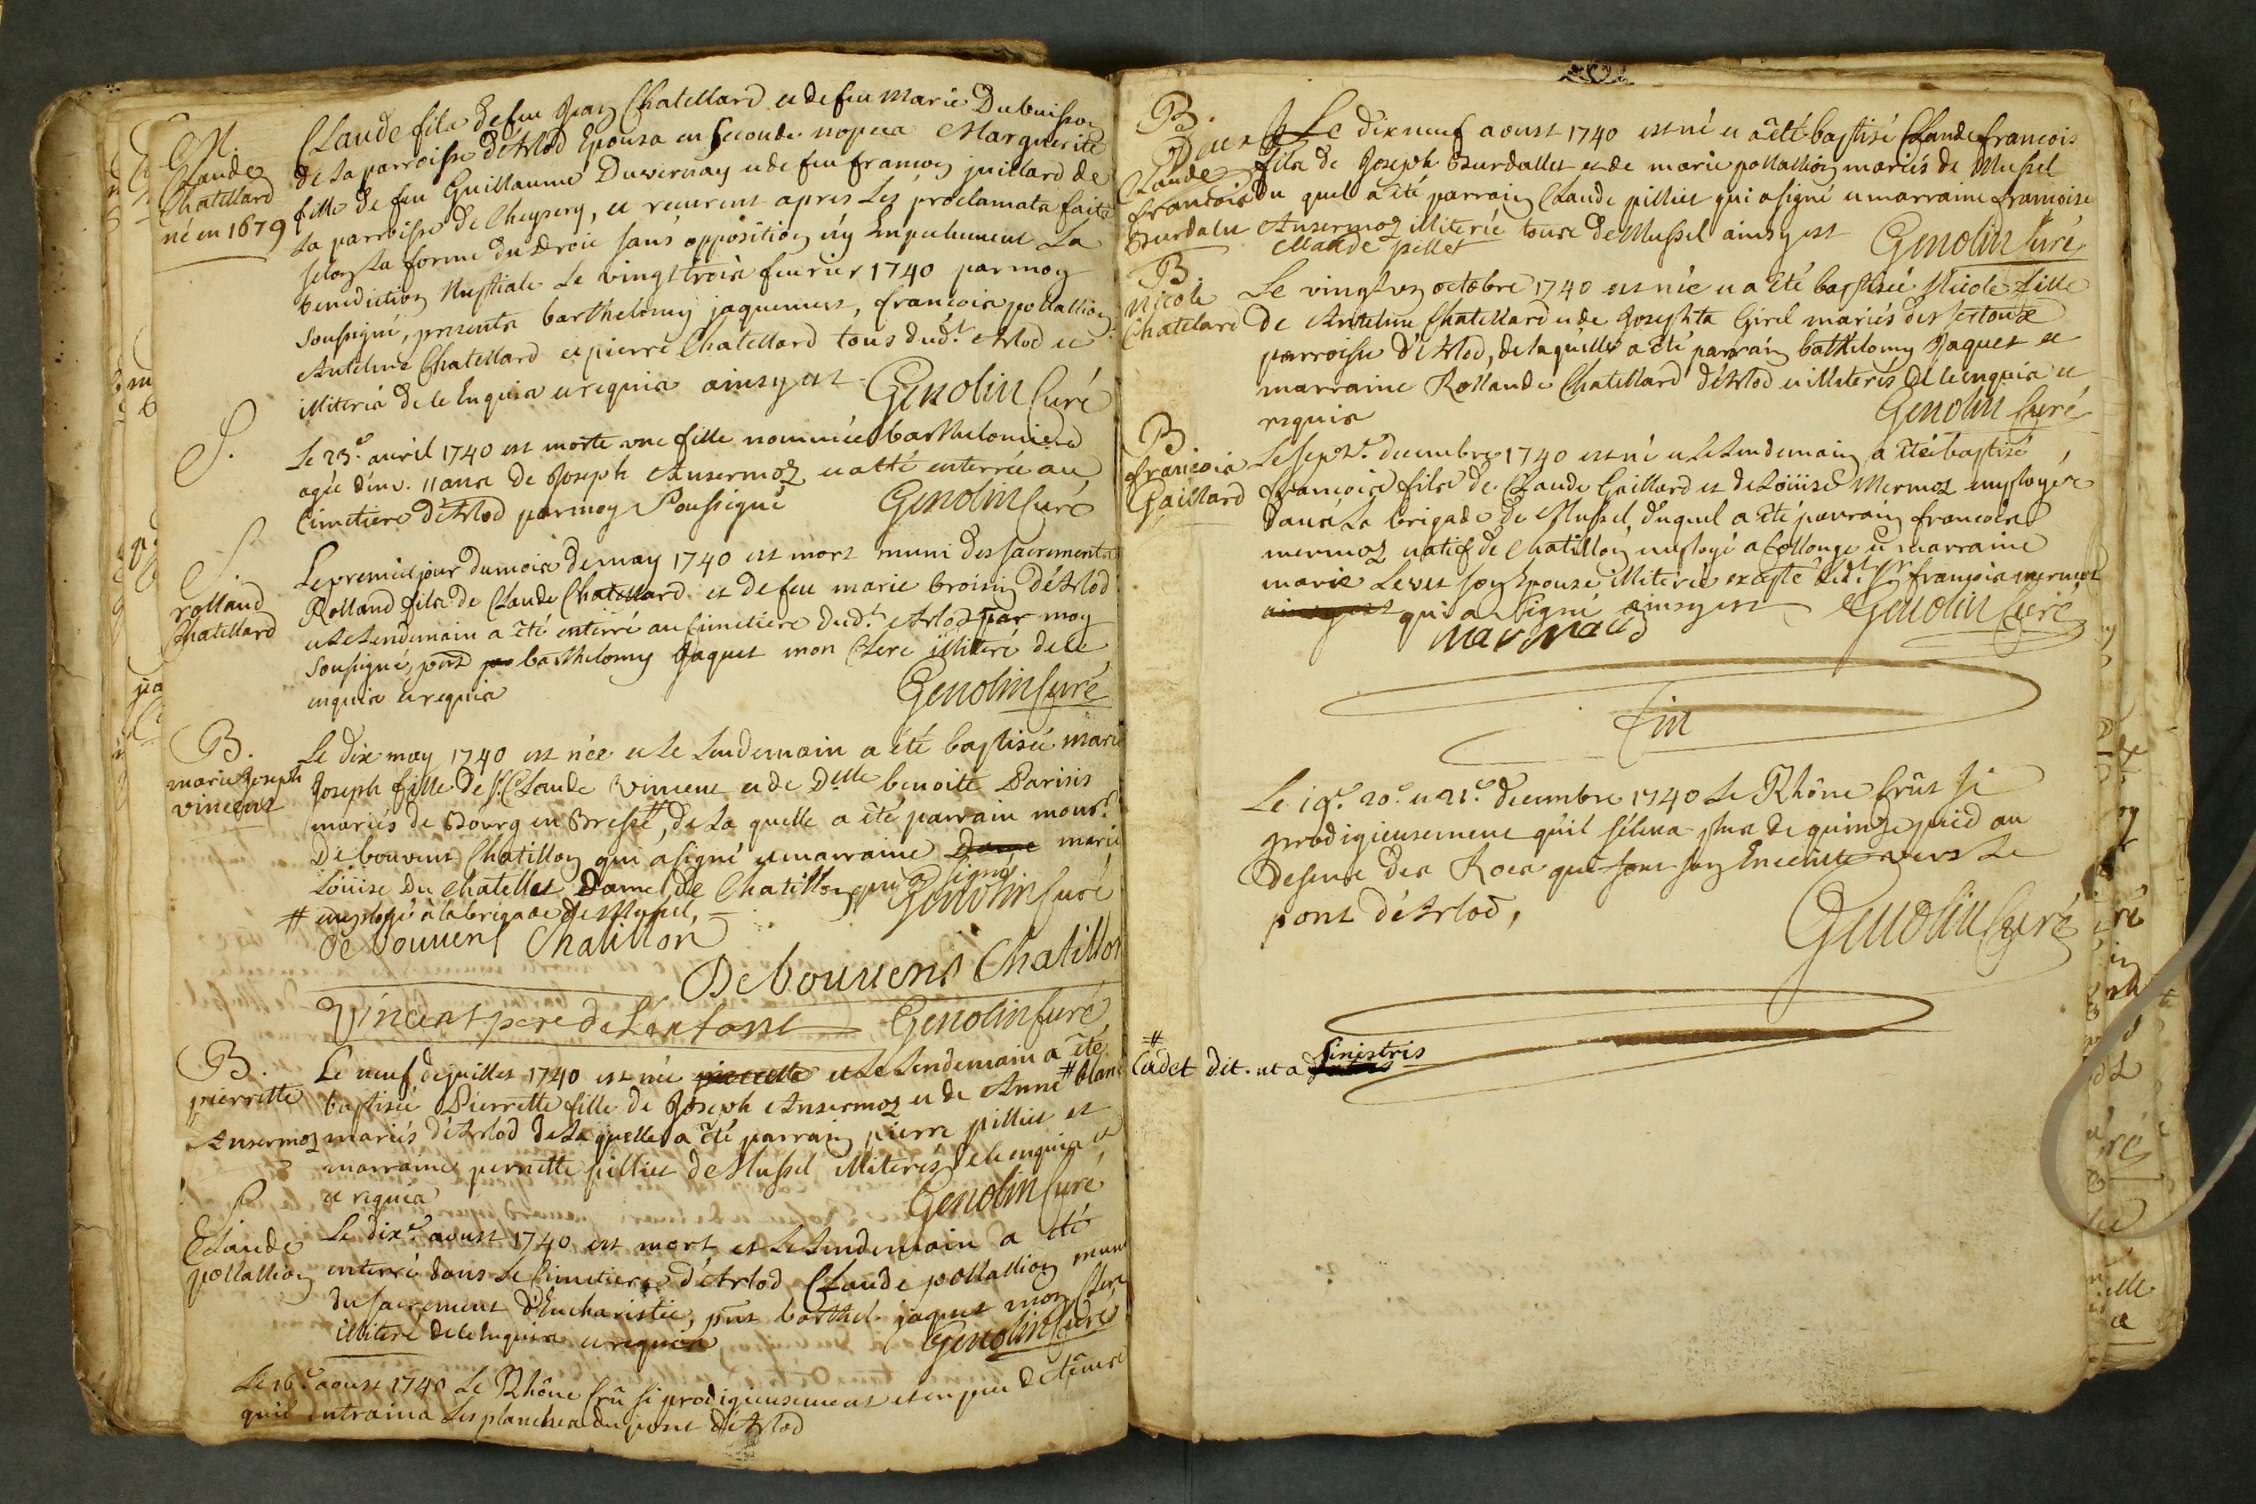 M.
Claude
Chatellard
né en 1679
Claude fils de feu Jean Chatellard et de feu Marie Dubuisson
de la parroisse d'Arlod Epousa en seconde nopces Marguerite
fille de feu Guillaume Duvernay et de feu francois juillard de
la parroisse de Cheysery, et reçurent apres les proclamats faits
selon la forme du Droit sans opposition n'y Empechement La
benediction Nuptiale Le vingt trois fevrier 1740 par moy
soussigné, presents barthelomy jaquemus, francois pollallion
Antelme Chatellard et pierre Chatellard tous dud.t Arlod et
illiterés de ce Enquis et requis ainsy est Genolin Curé
S.
Le 23.e avril 1740 est morte une fille nommée barthelomiere
agée d'env. 11 ans de Joseph Ansermoz et a été enterrée au
Cimetiere d'Arlod par moy Soussigné Genolin Curé
S.
rolland
Chatellard
Le premier jour du mois de may 1740 est mort muni des sacrements
Rolland fils de Claude Chatellard et de feu marie broisin d'Arlod
et le Lendemain a été enterré au Cimetiere dud.t Arlod par moy
soussigné, pnt barthelomy Jaquet mon Clerc illiteré de ce
enquis et requis Genolin Curé
B.
marie Joseph
vincent
Le dix may 1740 est née et le Lendemain a été baptisée marie
Joseph fille de s.r Claude Vincent et de D.lle benoite Parisis
mariés de Bourg en Bresse #, de la quelle a été parrain mons.r
De bouvens Chatillon qui a signé et marraine Dame marie
Loüise Du chatellet Dame de Chatillon qui a signé
# employé à la brigade de Mussel, Genolin Curé
de bouvens Chatillon
De bouvens Chatillon
Vincent pere de Lenfant Genolin Curé
B.
pierrette
Ansermoz
Le neuf de juillet 1740 est née pierrette et le Lendemain a été
baptisée Pierrette fille de Joseph Ansermoz et de Anne # blanc
mariés d'Arlod de la quelle a été parrain pierre pilliet et
marraine pernette pilliet de Mussel illiterés de ce enquis et
et requis Genolin Curé
S.
Claude
pollallion
Le dix.e aoust 1740 est mort et le Lendemain a été
enterré dans le Cimetiere d'Arlod Claude pollallion muni
du sacrement d'Eucharistie, pnt barthel. jaquet mon Clerc
illiteré de ce Enquis et requis Genolin Curé
Le 16.e aoust 1740 Le Rhône Crû si prodigieusement et en peu de tems
quil entraina les planches du pont d'Arlod
B.
Claude
francois
Burdalet
Le dix neuf aoust 1740 est né et a été baptisé Claude francois
fils de Joseph Burdallet et de marie pollallion mariés de Mussel
du quel a été parrain Claude pilliet qui a signé et marraine francoise
Ansermoz illiterée tous de Mussel ainsy est Genolin Curé
Claude pillet
B.
Nicole
Chatelard
Le vingt un octobre 1740 est née et a été baptisée Nicole fille
de Antelme Chatellard et de Josephta Girel mariés des sertoux
parroisse d'Arlod, de laquelle a été parrain bathelomy Jaquet et
marraine Rollande Chatellard d'Arlod et illiterés de ce enquis et
requis Genolin Curé
B.
francois
Gaillard
Le sept.e decembre 1740 est né et le Lendemain a été baptisé
francois fils de Claude Gaillard et de Loüise Mermoz employé
dans la brigade de Mussel, duquel a été parrain francois
mermoz natif de Chatillon employé a Collonge et marraine
marie Levet son Epouse illiterée excepté led.t s.r francois mermoz
ainsy est qui a signé ainsy est Genolin Curé
Fin
Le 19.e 20.e et 21.e decembre 1740 Le Rhône Crût si
prodigieusement qu'il s'éleva plus de quinze pied au
dessus des Rocs qui font son Enceinte vers le
pont d'Arlod,
Genolin Curé
# Cadet dit. ut a sinistris